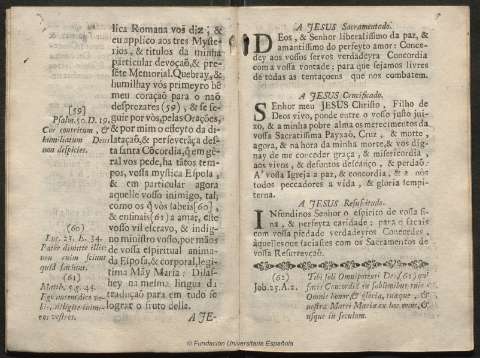 lica Romana vos diz; &
eu applico aos tres Myste-
rios, & titulos da minha
particular devoçaõ, & pre-
sẽte Memorial. Quebray, &
humilhay vòs primeyro hẽ
meu coraçaõ para o naõ
desprezares (59), & se se-
guir por vòs, pelas Orações,
& por mim o effeyto da di-
lataçaõ, & perseverãça des-
ta santa Cõcordia, q̃ em ge-
ral vos pede, ha tãtos tem-
pos, vossa mystica Esposa,
& em particular agora
aquelle vosso inimigo, tal,
como os q̃ vòs sabeis (60)
& ensinais (61) a amar, este
vosso vil escravo, & indig-
no ministro vosso, por mãos
de vossa espiritual animada
Esposa, & corporal, legi-
tima Mãy Maria: Dilas-
hey na mesma lingua da
traduçaõ para em tudo se
lograr o fruto della.
A JE-
[59]
Psalm. 50. D. 19.
Cor contritum, &
humiliatum Deus
non despicies.
(60)
Luc. 23. E. 34.
Pater dimitte illis:
non enim sciunt
quid faciunt.
(61)
Matth. 5. g. 44.
Ego autem dico vo-
bis, diligite inimi-
cos vestros.
A JESUS Sacramentado.
DEos, & Senhor liberalissimo da paz, &
amantissimo do perfeyto amor: Conce-
dey aos vossos servos verdadeyra Concordia
com a vossa vontade; para que sejamos livres
de todas as tentaçoens que nos combatem.
A JESUS Crucificado.
SEnhor meu JESUS Christo, Filho de
Deos vivo, ponde entre o vosso justo juizo,
& a minha pobre alma os merecimentos da
vossa Sacratissima Payxaõ, Cruz, & morte,
agora, & na hora da minha morte, & vos dig-
nay de me conceder graça, & misericordia,
aos vivos, & defuntos descanço, & perdaõ:
A' vossa Igreja a paz, & concordia, & a nòs
todos peccadores a vida, & gloria sempi-
terna.
A JESUS Resuscitado.
INfundinos Senhor o espirito de vossa fi-
na, & perfeyta caridade: para q façais
com vossa piedade verdadeyros Concordes,
aquelles que faciastes com os Sacramentos de
vossa Resurreyçaõ.
(62)
Job. 25. A. 2.
Tibi soli Omnipotenti Deo (62) qui
facis Concordiã in sublimibus tuis
Omnis honor, & gloria, tuæque, &
nostræ Matri Mariæ ex hoc nunc, &
usque in seculum.
© Fundación Universitaria Española